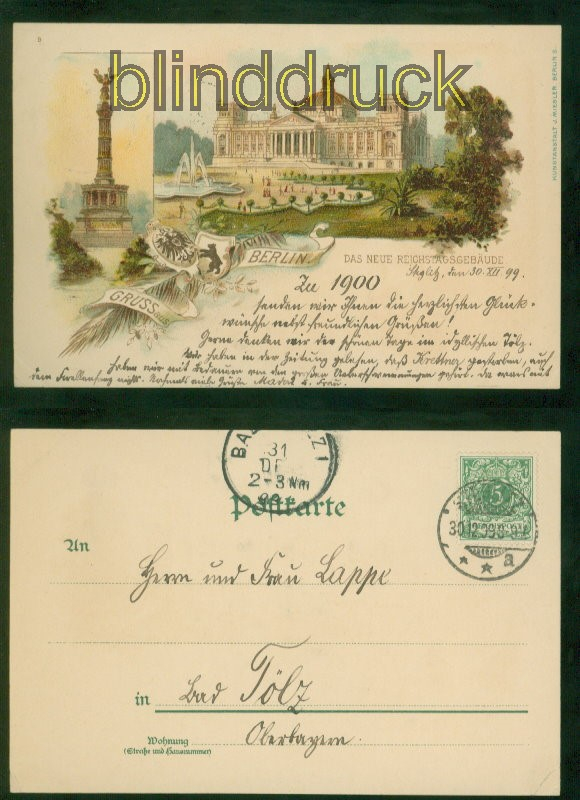 8
blinddruck
KUNSTANSTALT J. MIESLER, BERLIN S.
GRUSS
BERLIN
DAS NEUE REICHSTAGSGEBÄUDE
Stglitz, den 30. XII 99.
Zu 1900
senden wir Ihnen die herzlichsten Glück-
wünsche nebst freundlichen Grüßen!
Gerne denken wir der schönen Tage im idyllischen Tölz.
Wir haben in der Zeitung gelesen, daß gestorben, auch
haben wir mit Bedauern von den großen Ueberschwemmungen gehört. Da wars mit
dem Forellenfang nichts. Nochmals viele Grüße u. Frau.
BA Z I
31
DE
2-3 Nm
99
Postkarte
5
30.12.99.8-9
* * a
An
Herrn und Frau Lappe
in Bad Tölz
Wohnung Oberbayern.
(Straße und Hausnummer)